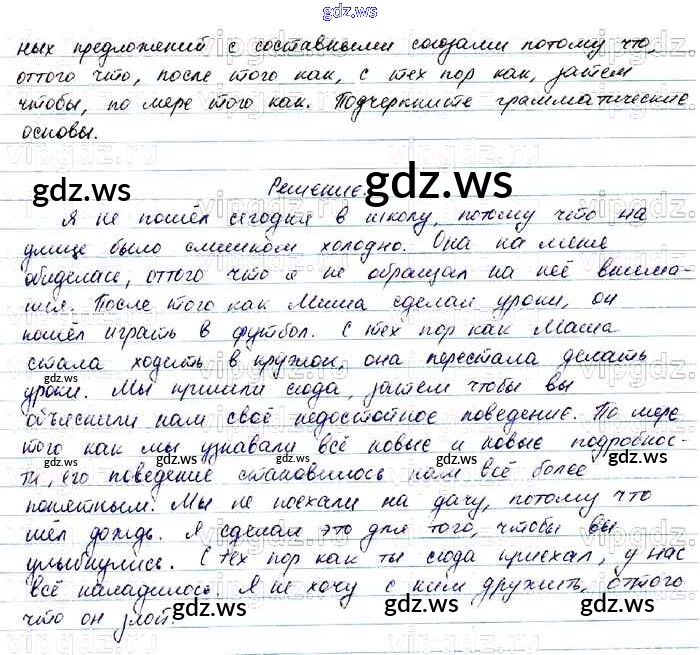 gdz.ws
ных предложений с составными союзами потому что,
оттого что, после того как, с тех пор как, затем
чтобы, по мере того как. Подчеркните грамматические
основы.
gdz.ws gdz.ws
Решение.
Я не пошёл сегодня в школу, потому что на
улице было слишком холодно. Она на меня
обиделась, оттого что я не обращал на неё внима-
ния. После того как Миша сделал уроки, он
пошёл играть в футбол. С тех пор как Маша
стала ходить в кружок, она перестала делать
уроки. Мы пришли сюда, затем чтобы вы
объяснили нам своё недостойное поведение. По мере
того как мы узнавали всё новые и новые подробнос-
ти, его поведение становилось нам всё более
понятным. Мы не поехали на дачу, потому что
шёл дождь. Я сделал это для того, чтобы вы
улыбнулись. С тех пор как ты сюда приехал, у нас
всё наладилось. Я не хочу с ним дружить, оттого
что он злой.
gdz.ws gdz.ws